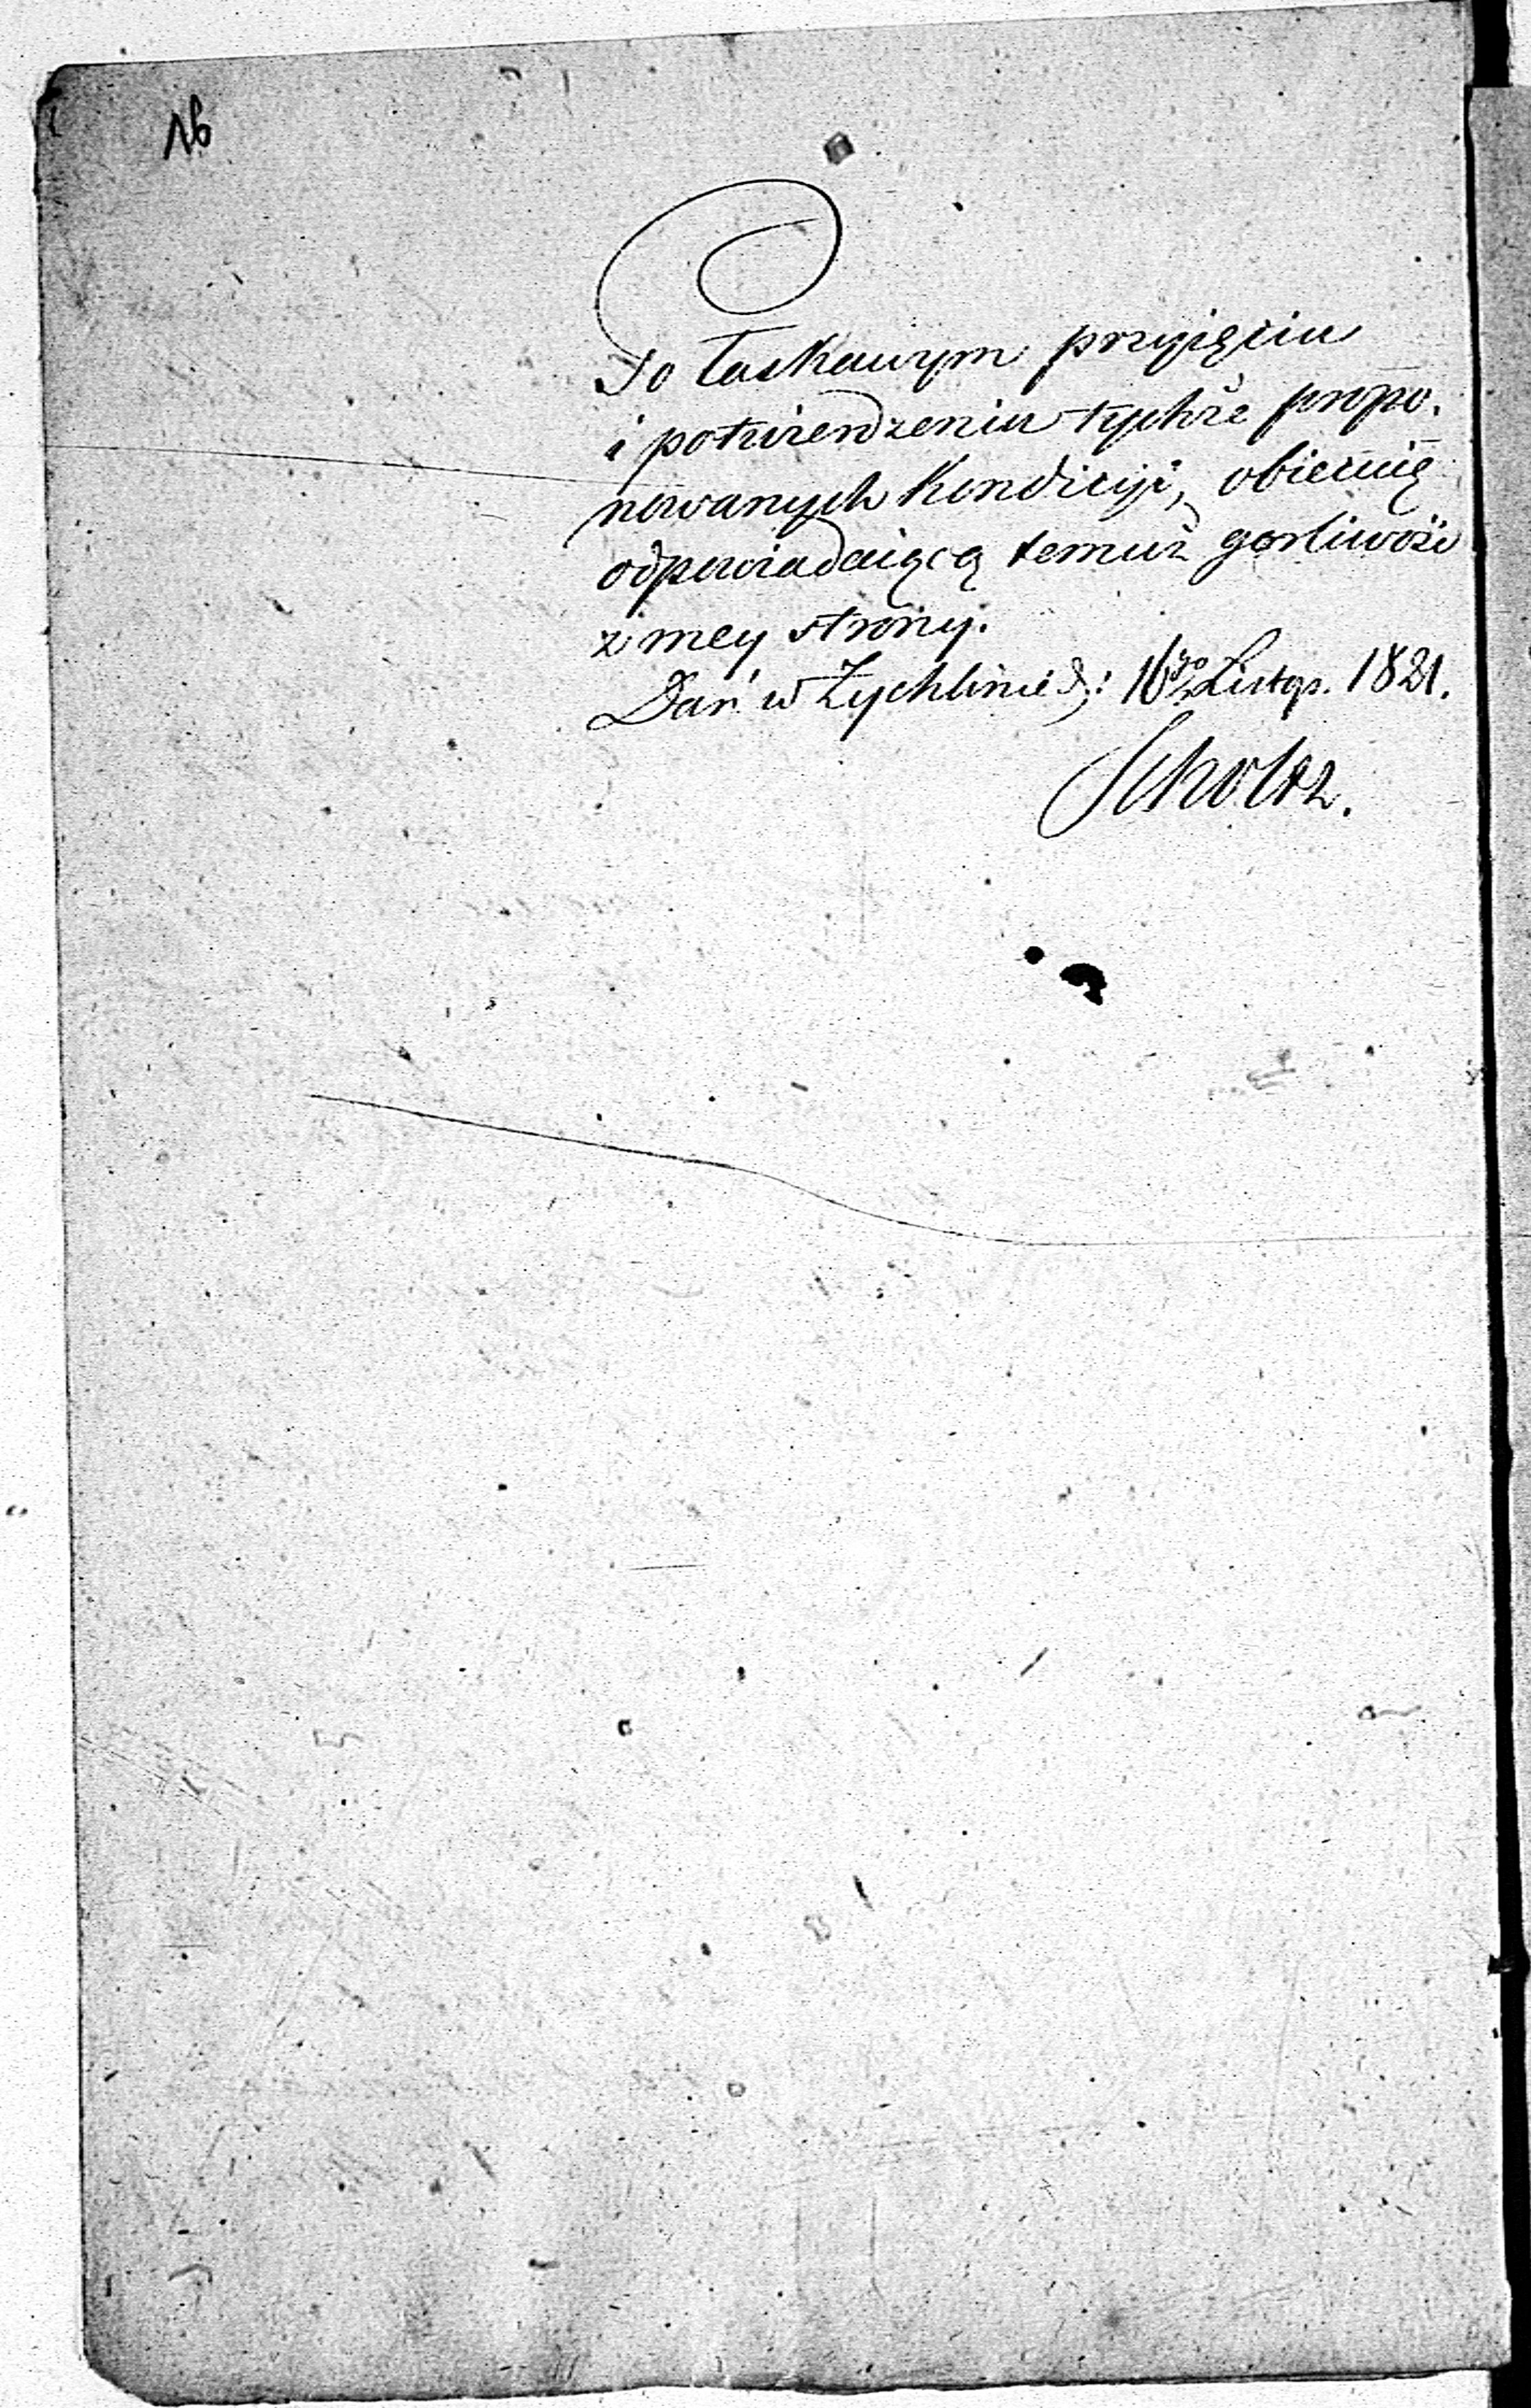 16
Po łaskawym przyięciu
i potwierdzeniu tychże propo.
nowanych Kondicyi, obiecuię
odpowiadaiącą temuż gorliwość
z mey strony.
Dań w Żychlinie d: 16go Listop. 1821.
Scholtz.